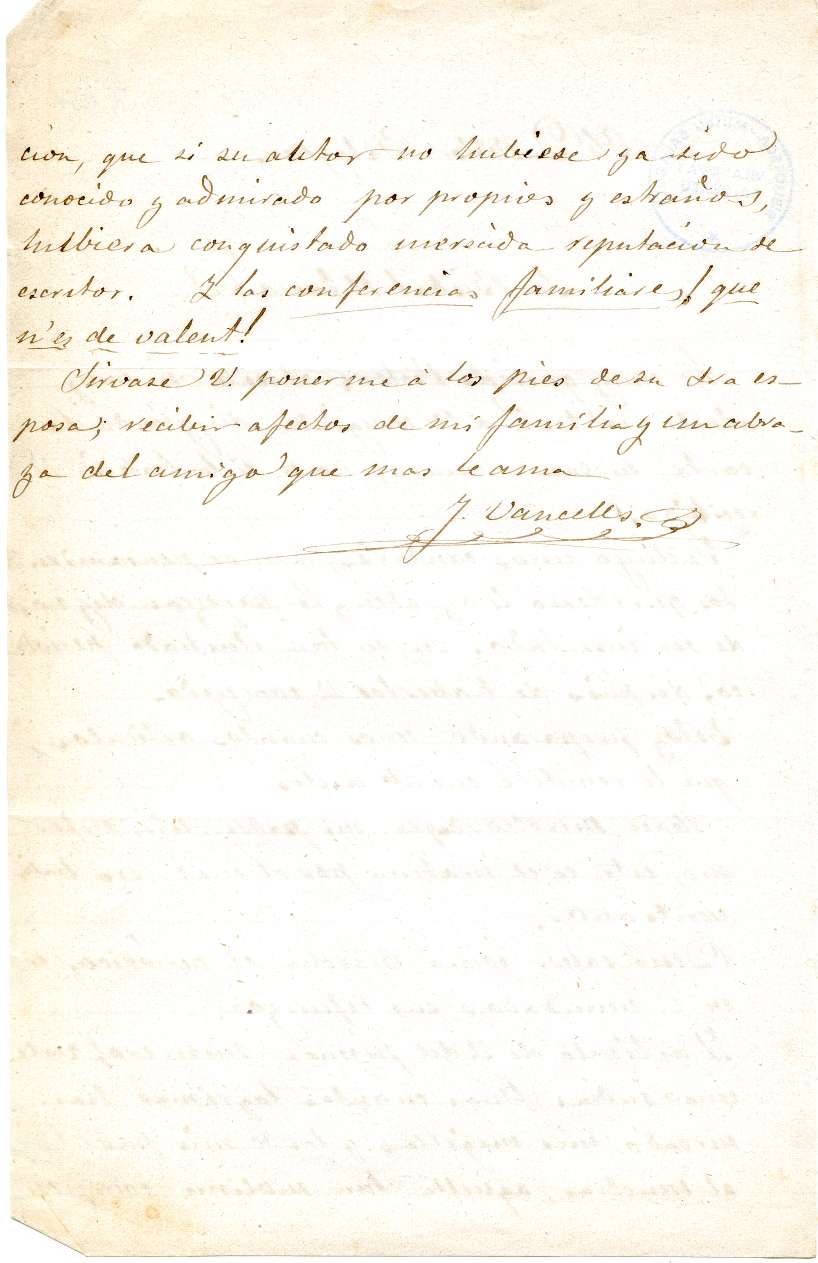 cion, que si su autor no hubiese ya sido
conocido y admirado por propios y estraños,
hubiera conquistado mersida reputacion de
escritor. Y las conferencias familiares! que
n'es de valent!
Sirvase V. ponerme à los pies de su Sra es-
posa; recibir afectos de mi familia y un abra-
za del amigo que mas le ama
J. Vancells.